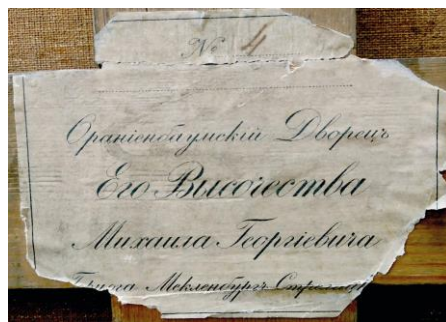 № 4
Ораніенбаумскій Дворецъ
Его Высочества
Михаила Георгіевича
Герцога Мекленбургъ Стрелицк